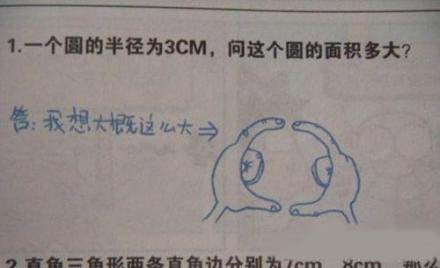 1.一个圆的半径为3CM，问这个圆的面积多大？
答：我想大概这么大⇒
2.直角三角形两条直角边分别为7cm，8cm，那么